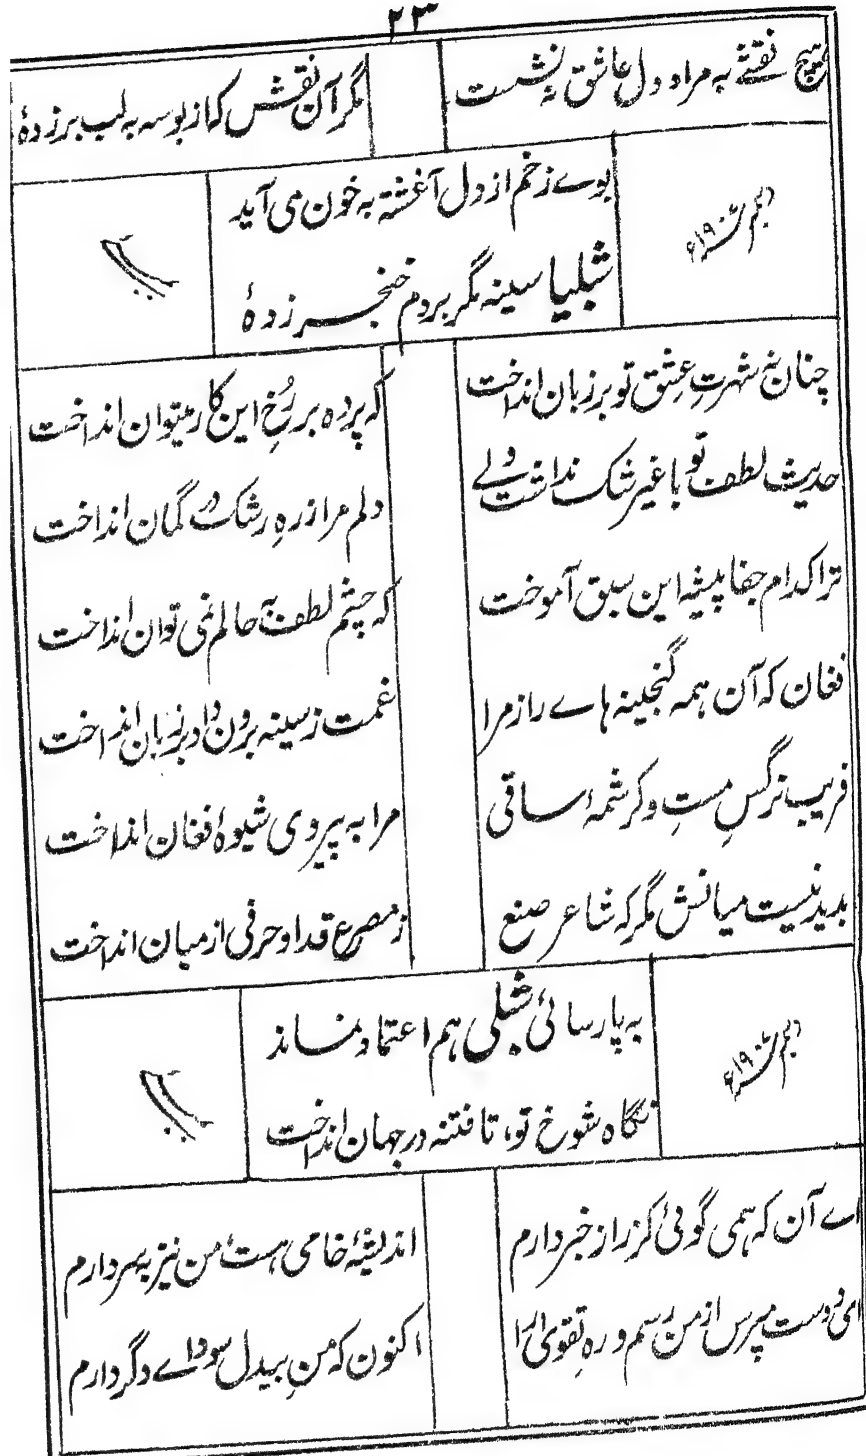 ۲۳
ہیچ نقشے بہ مراد دل عاشق نہ نشست
مگر آن نقش کہ از بوسہ بہ لب بر زدۂ
بوے زخم از دل آغشتہ بہ خون می آید
شبلیا سینہ مگر بر دم خنجر زدۂ
دسمبر سنہ ۱۹۰۶ء
چنان نہ شہرتِ عشق تو بر زبان انداخت
کہ پردہ بر رُخِ این کار میتوان انداخت
حدیث لطف تو با غیر شک نداشت ولے
دلم مرا ز رہِ رشک در گمان انداخت
ترا کدام جفا پیشہ این سبق آموخت
کہ چشم لطف بہ حالم نمی توان انداخت
فغان کہ آن ہمہ گنجینہ ہاے راز مرا
غمت ز سینہ برون داد و بر زبان انداخت
فریب نرگسِ مستِ و کرشمۂ ساقی
مرا بہ پیروی شیوۂ فغان انداخت
بدید نیست میانش مگر کہ شاعر صنع
ز مصرع قد او حرفی از میان انداخت
بہ پارسائی شبلی ہم اعتماد نماند
نگاہ شوخ تو، تا فتنہ در جہان انداخت
دسمبر سنہ ۱۹۰۶ء
اے آن کہ ہمی گوئی کز راز خبر دارم
اندیشۂ خامی ہست من نیز بسر دارم
ای دوست مپرس از من رسم و رہِ تقوی را
اکنون کہ منِ بیدل سوداے دگر دارم